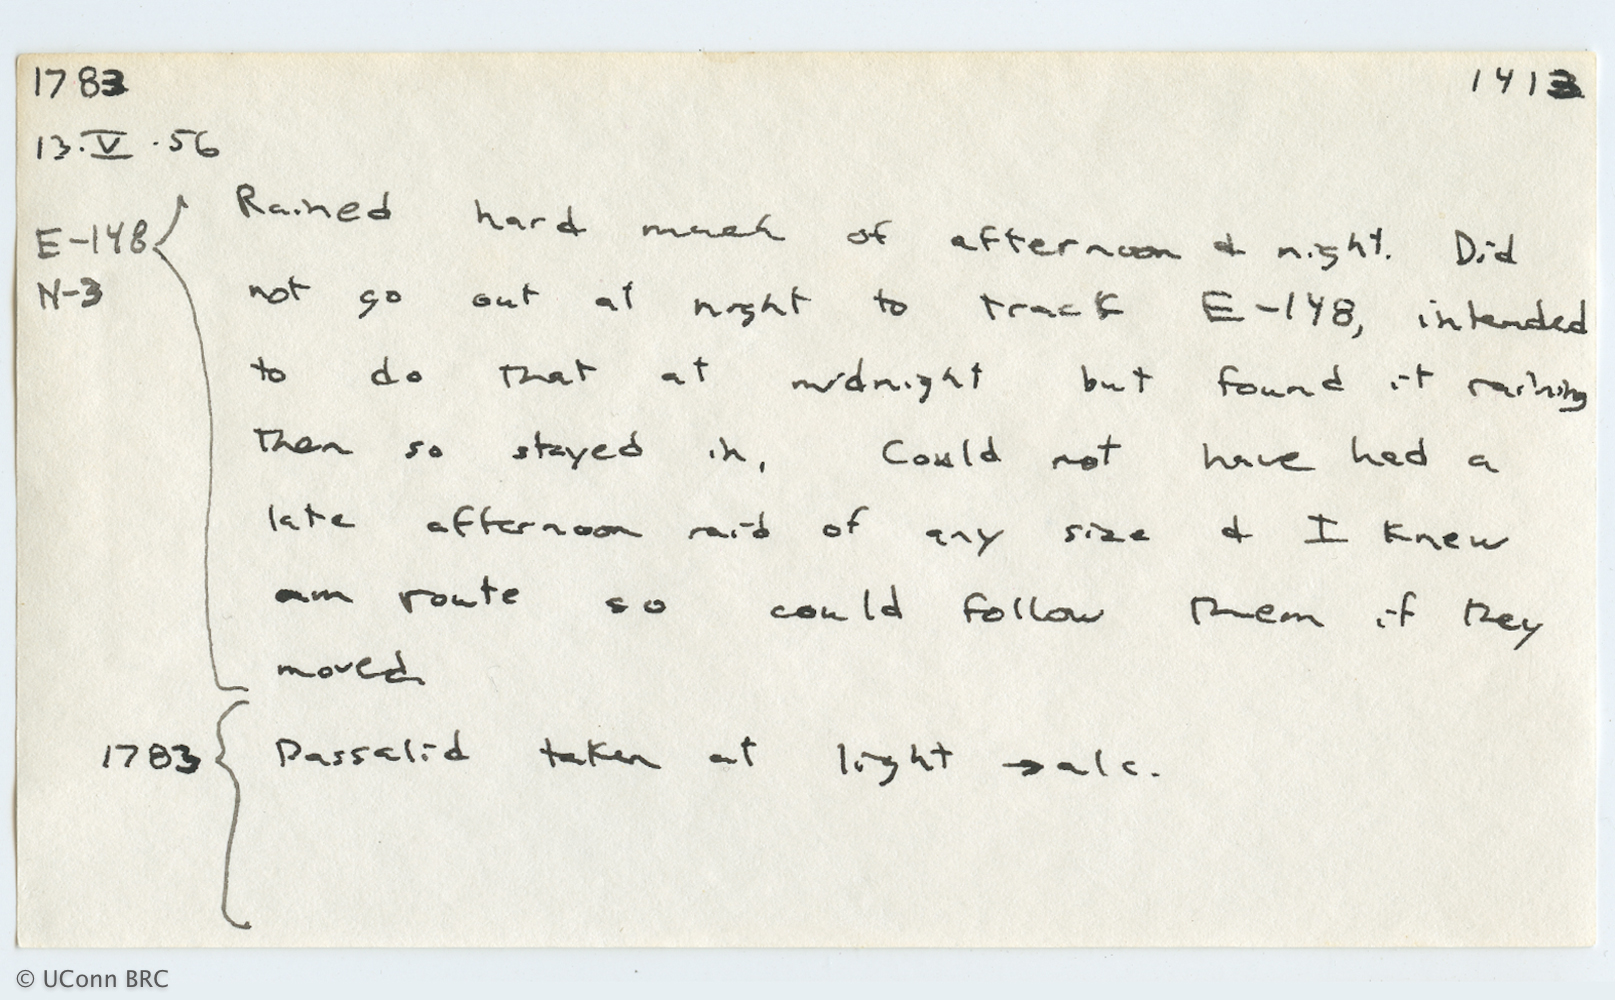 1783 1413
13.V.56
E-148 Rained hard much of afternoon & night. Did
N-3 not go out at night to track E-148, intended
to do that at midnight but found it raining
then so stayed in, Could not have had a
late afternoon raid of any size & I knew
am route so could follow them if they
moved
1783 Passalid taken at light → alc.
© UConn BRC